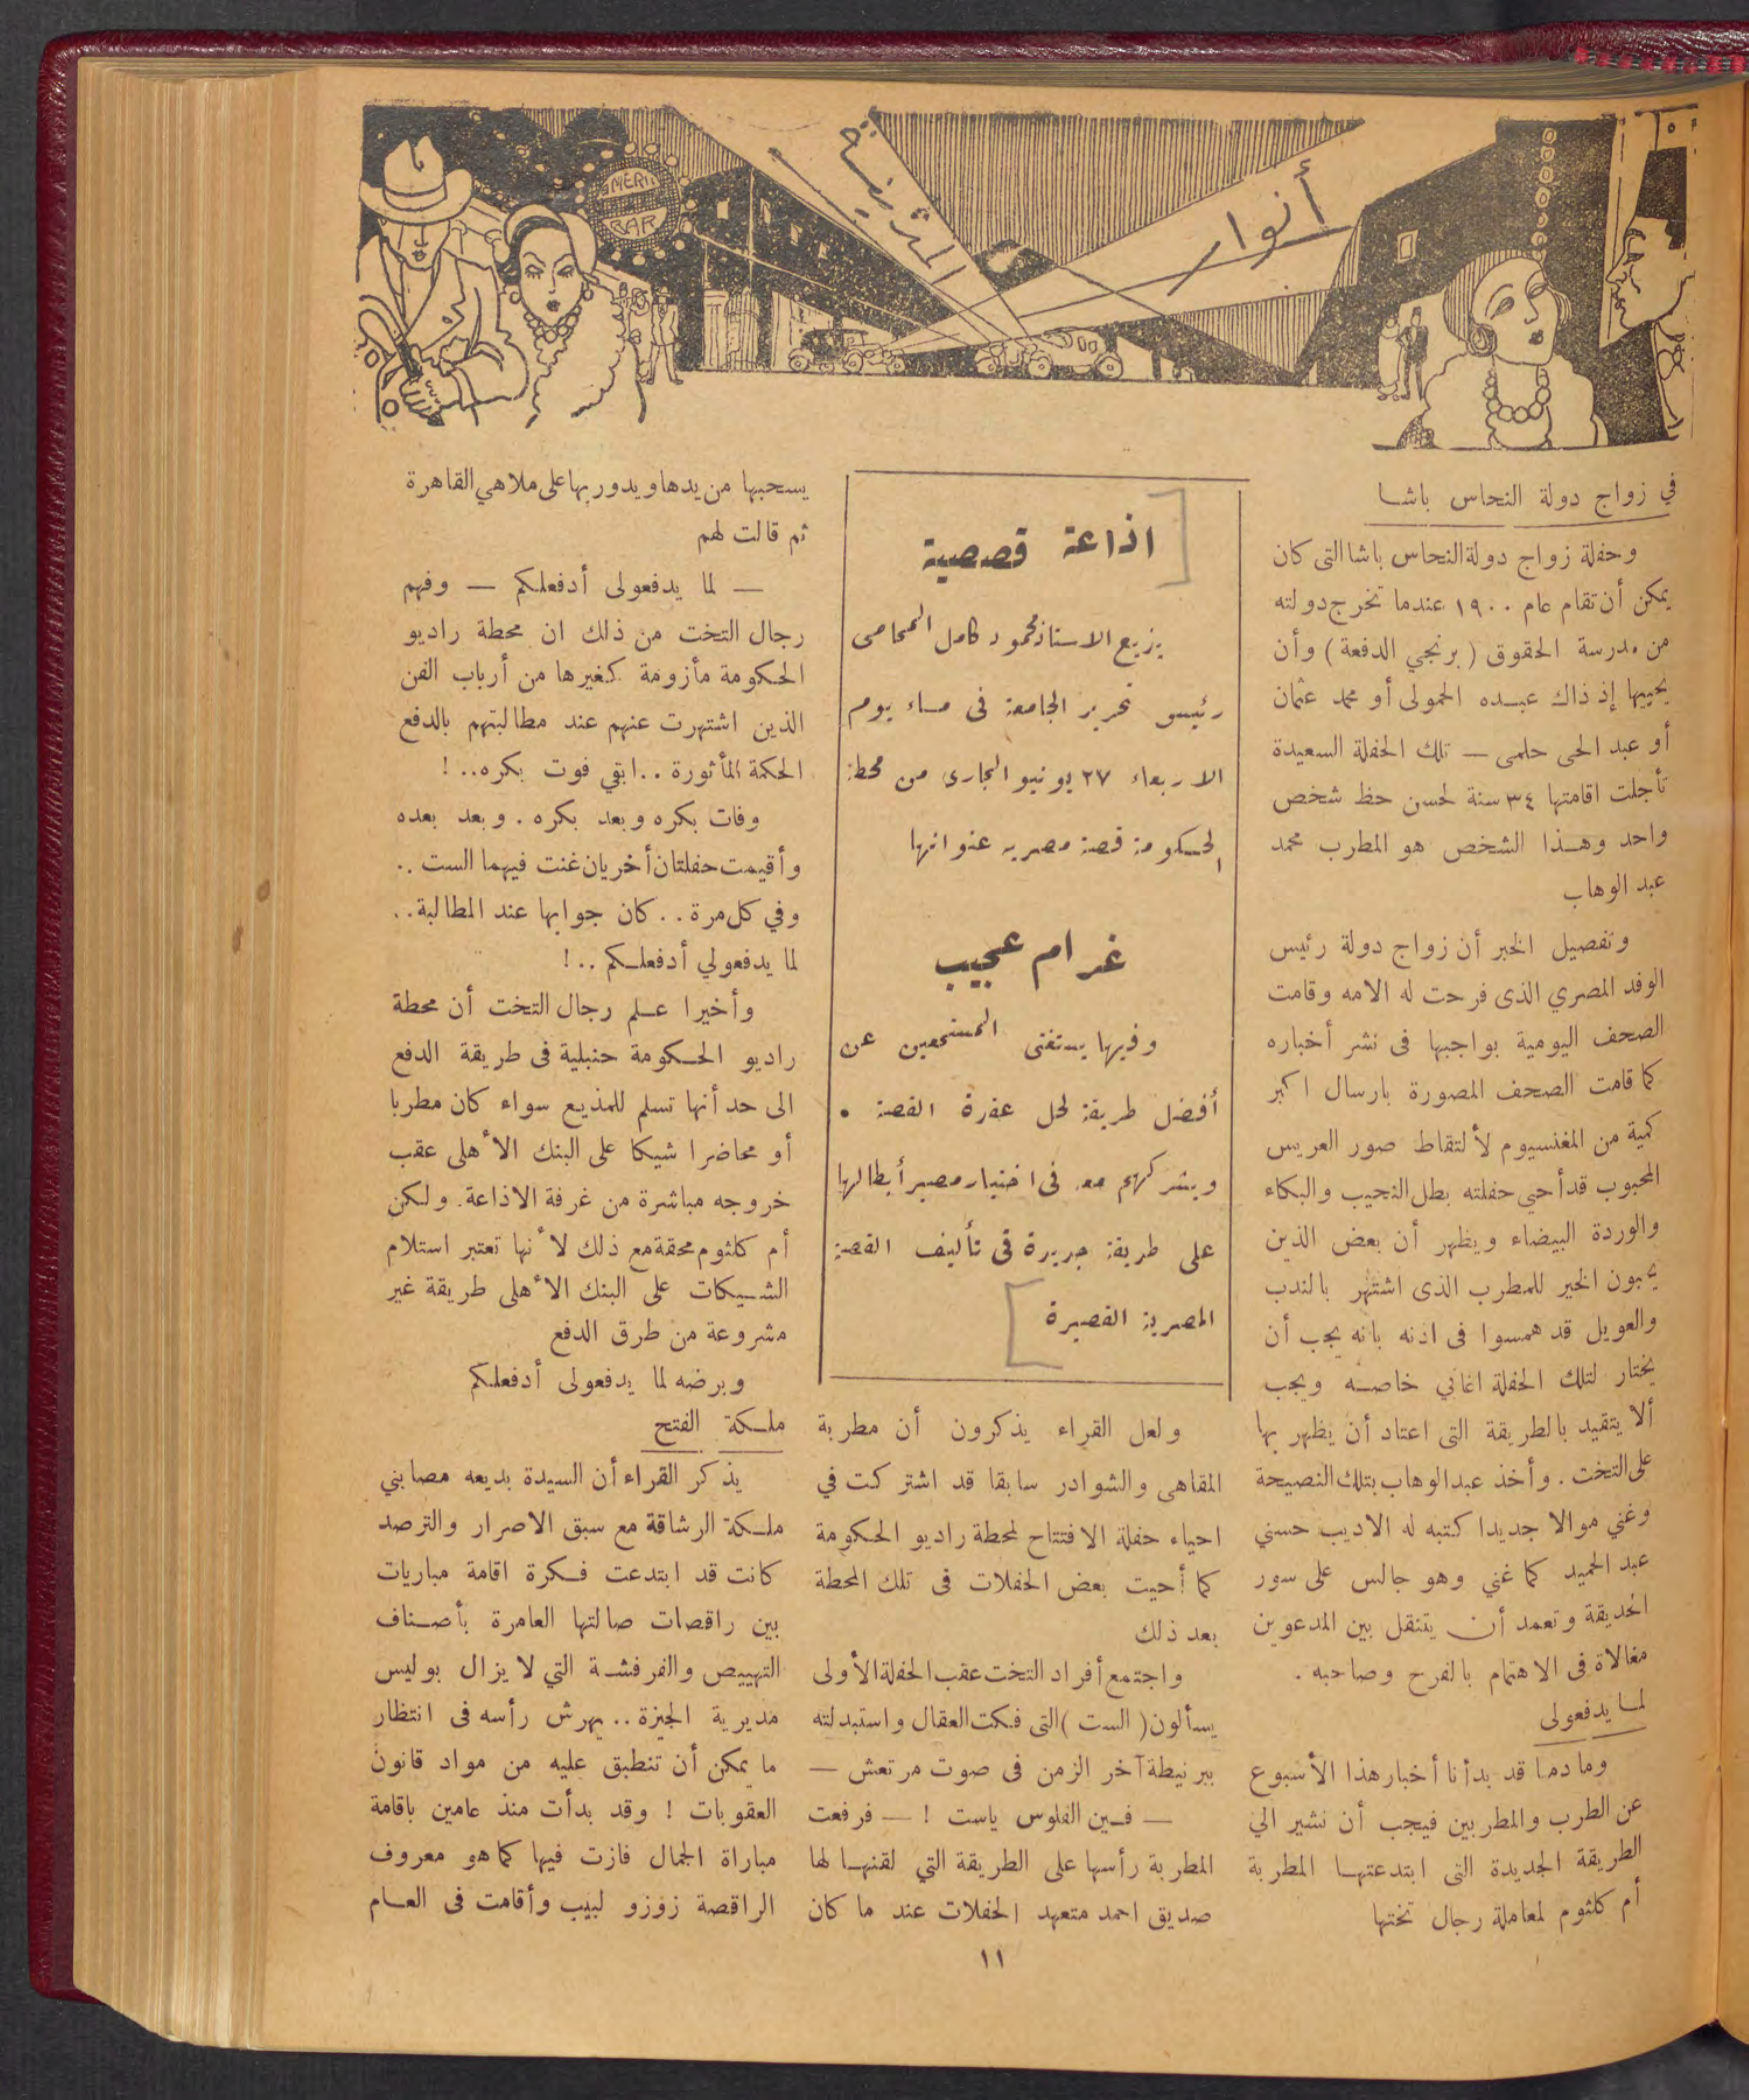 أنوار
المدينة
AMERI
BAR
في زواج دولة النحاس باشا
وحفلة زواج دولة النحاس باشا التى كان
يمكن أن تقام عام ١٩٠٠ عندما تخرج دولته
من مدرسة الحقوق ( برنجي الدفعة ) وأن
يحييها إذ ذاك عبده الحمولى أو محمد عثمان
أو عبد الحى حلمى — تلك الحفلة السعيدة
تأجلت اقامتها ٣٤ سنة لحسن حظ شخص
واحد وهذا الشخص هو المطرب محمد
عبد الوهاب
وتفصيل الخبر أن زواج دولة رئيس
الوفد المصري الذى فرحت له الامه وقامت
الصحف اليومية بواجبها فى نشر أخباره
كما قامت الصحف المصورة بارسال اكبر
كمية من المغنسيوم لألتقاط صور العريس
المحبوب قد أحي حفلته بطل النحيب والبكاء
والوردة البيضاء ويظهر أن بعض الذين
يحبون الخير للمطرب الذى اشتهر بالندب
والعويل قد همسوا فى اذنه بانه يجب أن
يختار لتلك الحفلة اغاني خاصه ويجب
ألا يتقيد بالطريقة التى اعتاد أن يظهر بها
على التخت . وأخذ عبد الوهاب بتلك النصيحة
وغني موالا جديدا كتبه له الاديب حسني
عبد الحميد كما غني وهو جالس على سور
الحديقة وتعمد أن يتنقل بين المدعوين
مغالاة فى الاهتمام بالفرح وصاحبه .
لما يدفعولى
وما دمنا قد بدأنا أخبار هذا الأسبوع
عن الطرب والمطربين فيجب أن نشير الي
الطريقة الجديدة التى ابتدعتها المطربة
أم كلثوم لمعاملة رجال تختها
اذاعة قصصية
يزيع الاستاذ محمود كامل المحامى
رئيس تحرير الجامعة فى مساء يوم
الاربعاء ٢٧ يونيو الجارى من محطة
الحكومة قصة مصرية عنوانها
غرام عجيب
وفيها يستفتى المستمعين عن
أفضل طريقة لحل عقدة القصة .
ويشركهم معه فى اختيار مصير أبطالها
على طريقة جديدة فى تأليف القصة
المصرية القصيرة
ولعل القراء يذكرون أن مطربة
المقاهى والشوادر سابقا قد اشتركت في
احياء حفلة الافتتاح لمحطة راديو الحكومة
كما أحيت بعض الحفلات فى تلك المحطة
بعد ذلك
واجتمع أفراد التخت عقب الحفلة الأولى
يسألون ( الست ) التى فكت العقال واستبدلته
ببرنيطة آخر الزمن فى صوت مرتعش —
— فين الفلوس ياست ! — فرفعت
المطربة رأسها على الطريقة التي لقنها لها
صديق احمد متعهد الحفلات عند ما كان
يسحبها من يدها ويدور بها على ملاهي القاهرة
ثم قالت لهم
— لما يدفعولى أدفعلكم — وفهم
رجال التخت من ذلك ان محطة راديو
الحكومة مأزومة كغيرها من أرباب الفن
الذين اشتهرت عنهم عند مطالبتهم بالدفع
الحكمة المأثورة .. ابقي فوت بكره.. !
وفات بكره وبعد بكره . وبعد بعده
وأقيمت حفلتان أخريان غنت فيهما الست ..
وفي كل مرة .. كان جوابها عند المطالبة..
لما يدفعولي أدفعلكم .. !
وأخيرا علم رجال التخت أن محطة
راديو الحكومة حنبلية فى طريقة الدفع
الى حد أنها تسلم للمذيع سواء كان مطربا
أو محاضرا شيكا على البنك الأهلى عقب
خروجه مباشرة من غرفة الاذاعة. ولكن
أم كلثوم محقة مع ذلك لأنها تعتبر استلام
الشيكات على البنك الأهلى طريقة غير
مشروعة من طرق الدفع
وبرضه لما يدفعولى أدفعلكم
ملكة الفتح
يذكر القراء أن السيدة بديعه مصابني
ملكة الرشاقة مع سبق الاصرار والترصد
كانت قد ابتدعت فكرة اقامة مباريات
بين راقصات صالتها العامرة بأصناف
التهييص والفرفشة التي لا يزال بوليس
مديرية الجيزة .. يهرش رأسه فى انتظار
ما يمكن أن تنطبق عليه من مواد قانون
العقوبات ! وقد بدأت منذ عامين باقامة
مباراة الجمال فازت فيها كما هو معروف
الراقصة زوزو لبيب وأقامت فى العام
١١